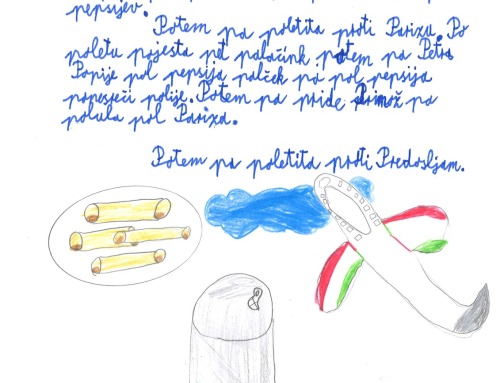 pepsijev.
Potem pa poletita proti Parizu. Po
poletu pojesta pet palačink potem pa Petra
Popije pol pepsija palček pa pol pepsija
ponesreči polije. Potem pa pride Primož pa
polula pol Pariza.
Potem pa poletita proti Predosljam.